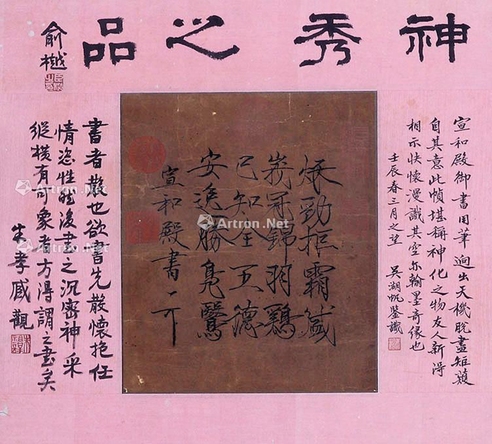 神秀之品
俞樾
宣和殿御書用筆迥出天機脫盡矩矱
自其意此幀堪稱神化之物友人新得
相示快懷漫識其空尔翰墨奇缘也
壬辰春三月之望 吴湖帆鉴識
秋勁拒霜盛
峩冠錦羽鷄
已知全五德
安逸勝鳧鷖
宣和殿書
書者散也欲書先散懷抱任
情恣性然後書之沉密神采
縱横有可象者方得謂之書矣
朱孝臧觀
Artron.Net
Artron.Net
Artron.Net